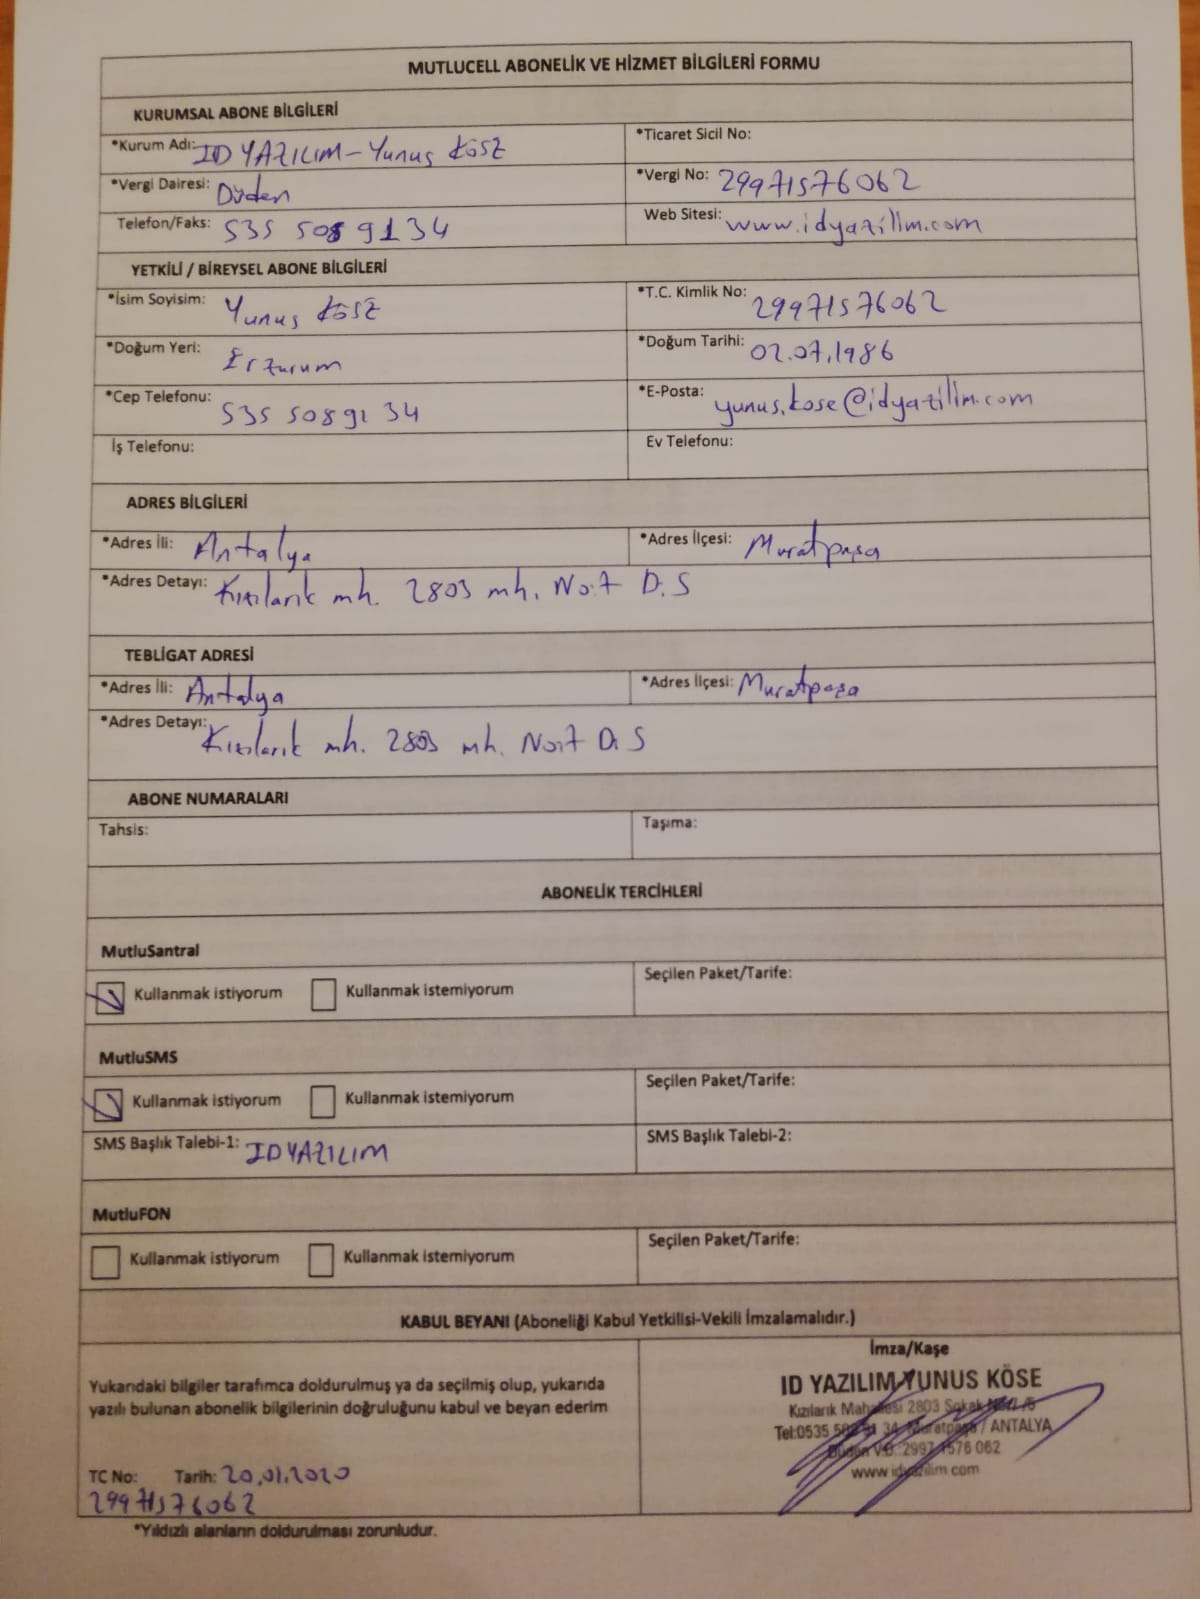 MUTLUCELL ABONELİK VE HİZMET BİLGİLERİ FORMU
KURUMSAL ABONE BİLGİLERİ
*Kurum Adı: ID YAZILIM-Yunus KÖSE
*Ticaret Sicil No:
*Vergi Dairesi: Düden
*Vergi No: 29971576062
Telefon/Faks: 535 508 9134
Web Sitesi: www.idyazilim.com
YETKİLİ / BİREYSEL ABONE BİLGİLERİ
*İsim Soyisim: Yunus KÖSE
*T.C. Kimlik No: 29971576062
*Doğum Yeri: Erzurum
*Doğum Tarihi: 02.07.1986
*Cep Telefonu: 535 508 91 34
*E-Posta: yunus.kose@idyazilim.com
İş Telefonu:
Ev Telefonu:
ADRES BİLGİLERİ
*Adres İli: Antalya
*Adres İlçesi: Muratpaşa
*Adres Detayı: Kızılarık mh. 2803 mh. No:7 D.5
TEBLİGAT ADRESİ
*Adres İli: Antalya
*Adres İlçesi: Muratpaşa
*Adres Detayı: Kızılarık mh. 2803 mh. No:7 D:5
ABONE NUMARALARI
Tahsis:
Taşıma:
ABONELİK TERCİHLERİ
MutluSantral
Kullanmak istiyorum Kullanmak istemiyorum
Seçilen Paket/Tarife:
MutluSMS
Kullanmak istiyorum Kullanmak istemiyorum
Seçilen Paket/Tarife:
SMS Başlık Talebi-1: IDYAZILIM
SMS Başlık Talebi-2:
MutluFON
Kullanmak istiyorum Kullanmak istemiyorum
Seçilen Paket/Tarife:
KABUL BEYANI (Aboneliği Kabul Yetkilisi-Vekili İmzalamalıdır.)
Yukarıdaki bilgiler tarafımca doldurulmuş ya da seçilmiş olup, yukarıda
yazılı bulunan abonelik bilgilerinin doğruluğunu kabul ve beyan ederim
TC No: Tarih: 20.01.2020
29971576062
İmza/Kaşe
ID YAZILIM-YUNUS KÖSE
Kızılarık Mahallesi 2803 Sokak
Tel:0535 34 Muratpaşa / ANTALYA
Düden V.D. 2997 1576 062
www.idyazilim.com
*Yıldızlı alanların doldurulması zorunludur.